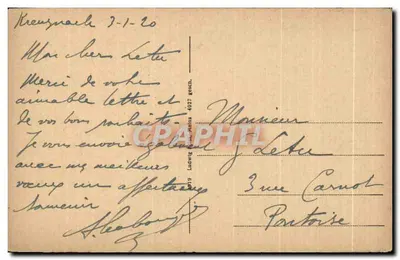 Kreuznach 3-1-20
Mon cher Letu
Merci de votre
aimable lettre et
de vos bons souhaits.
Je vous envoie également
avec mes meilleurs
vœux un affectueux
souvenir
Ludwig Mainz 4937 gesch.
CPARAMA
Monsieur
J Letu
3 rue Carnot
Pontoise